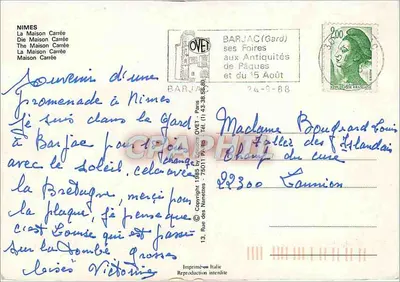 NIMES
La Maison Carrée
Die Maison Carrée
The Maison Carrée
La Maison Carrée
Maison Carrée
OVET
BARJAC (Gard)
ses Foires
aux Antiquités
de Pâques
et du 15 Août
BARJAC
24-8-88
2,00
Souvenir d'une
promenade à Nîmes
je suis dans le Gard
à Barjac pour
avec le soleil, cela
change
la Bretagne, merci pour
la plaque, je pense que
c'est Louise qui est passé
sur la tombe grosses
bises Victorine
Madame Bougeard Louis
Vallée des Islandais
Champ du
22300 Lannion
© Copyright 1985 by Editions OVET - Paris
13, Rue des Nanettes - 75011 PARIS - Tél. (1) 43.38.56.
Imprimé en Italie
Reproduction interdite